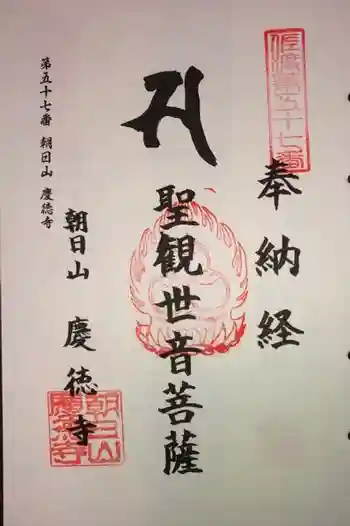 佐渡第五十七番
奉納経
聖観世音菩薩
朝日山 慶徳寺
朝日山慶徳寺
第五十七番 朝日山 慶徳寺